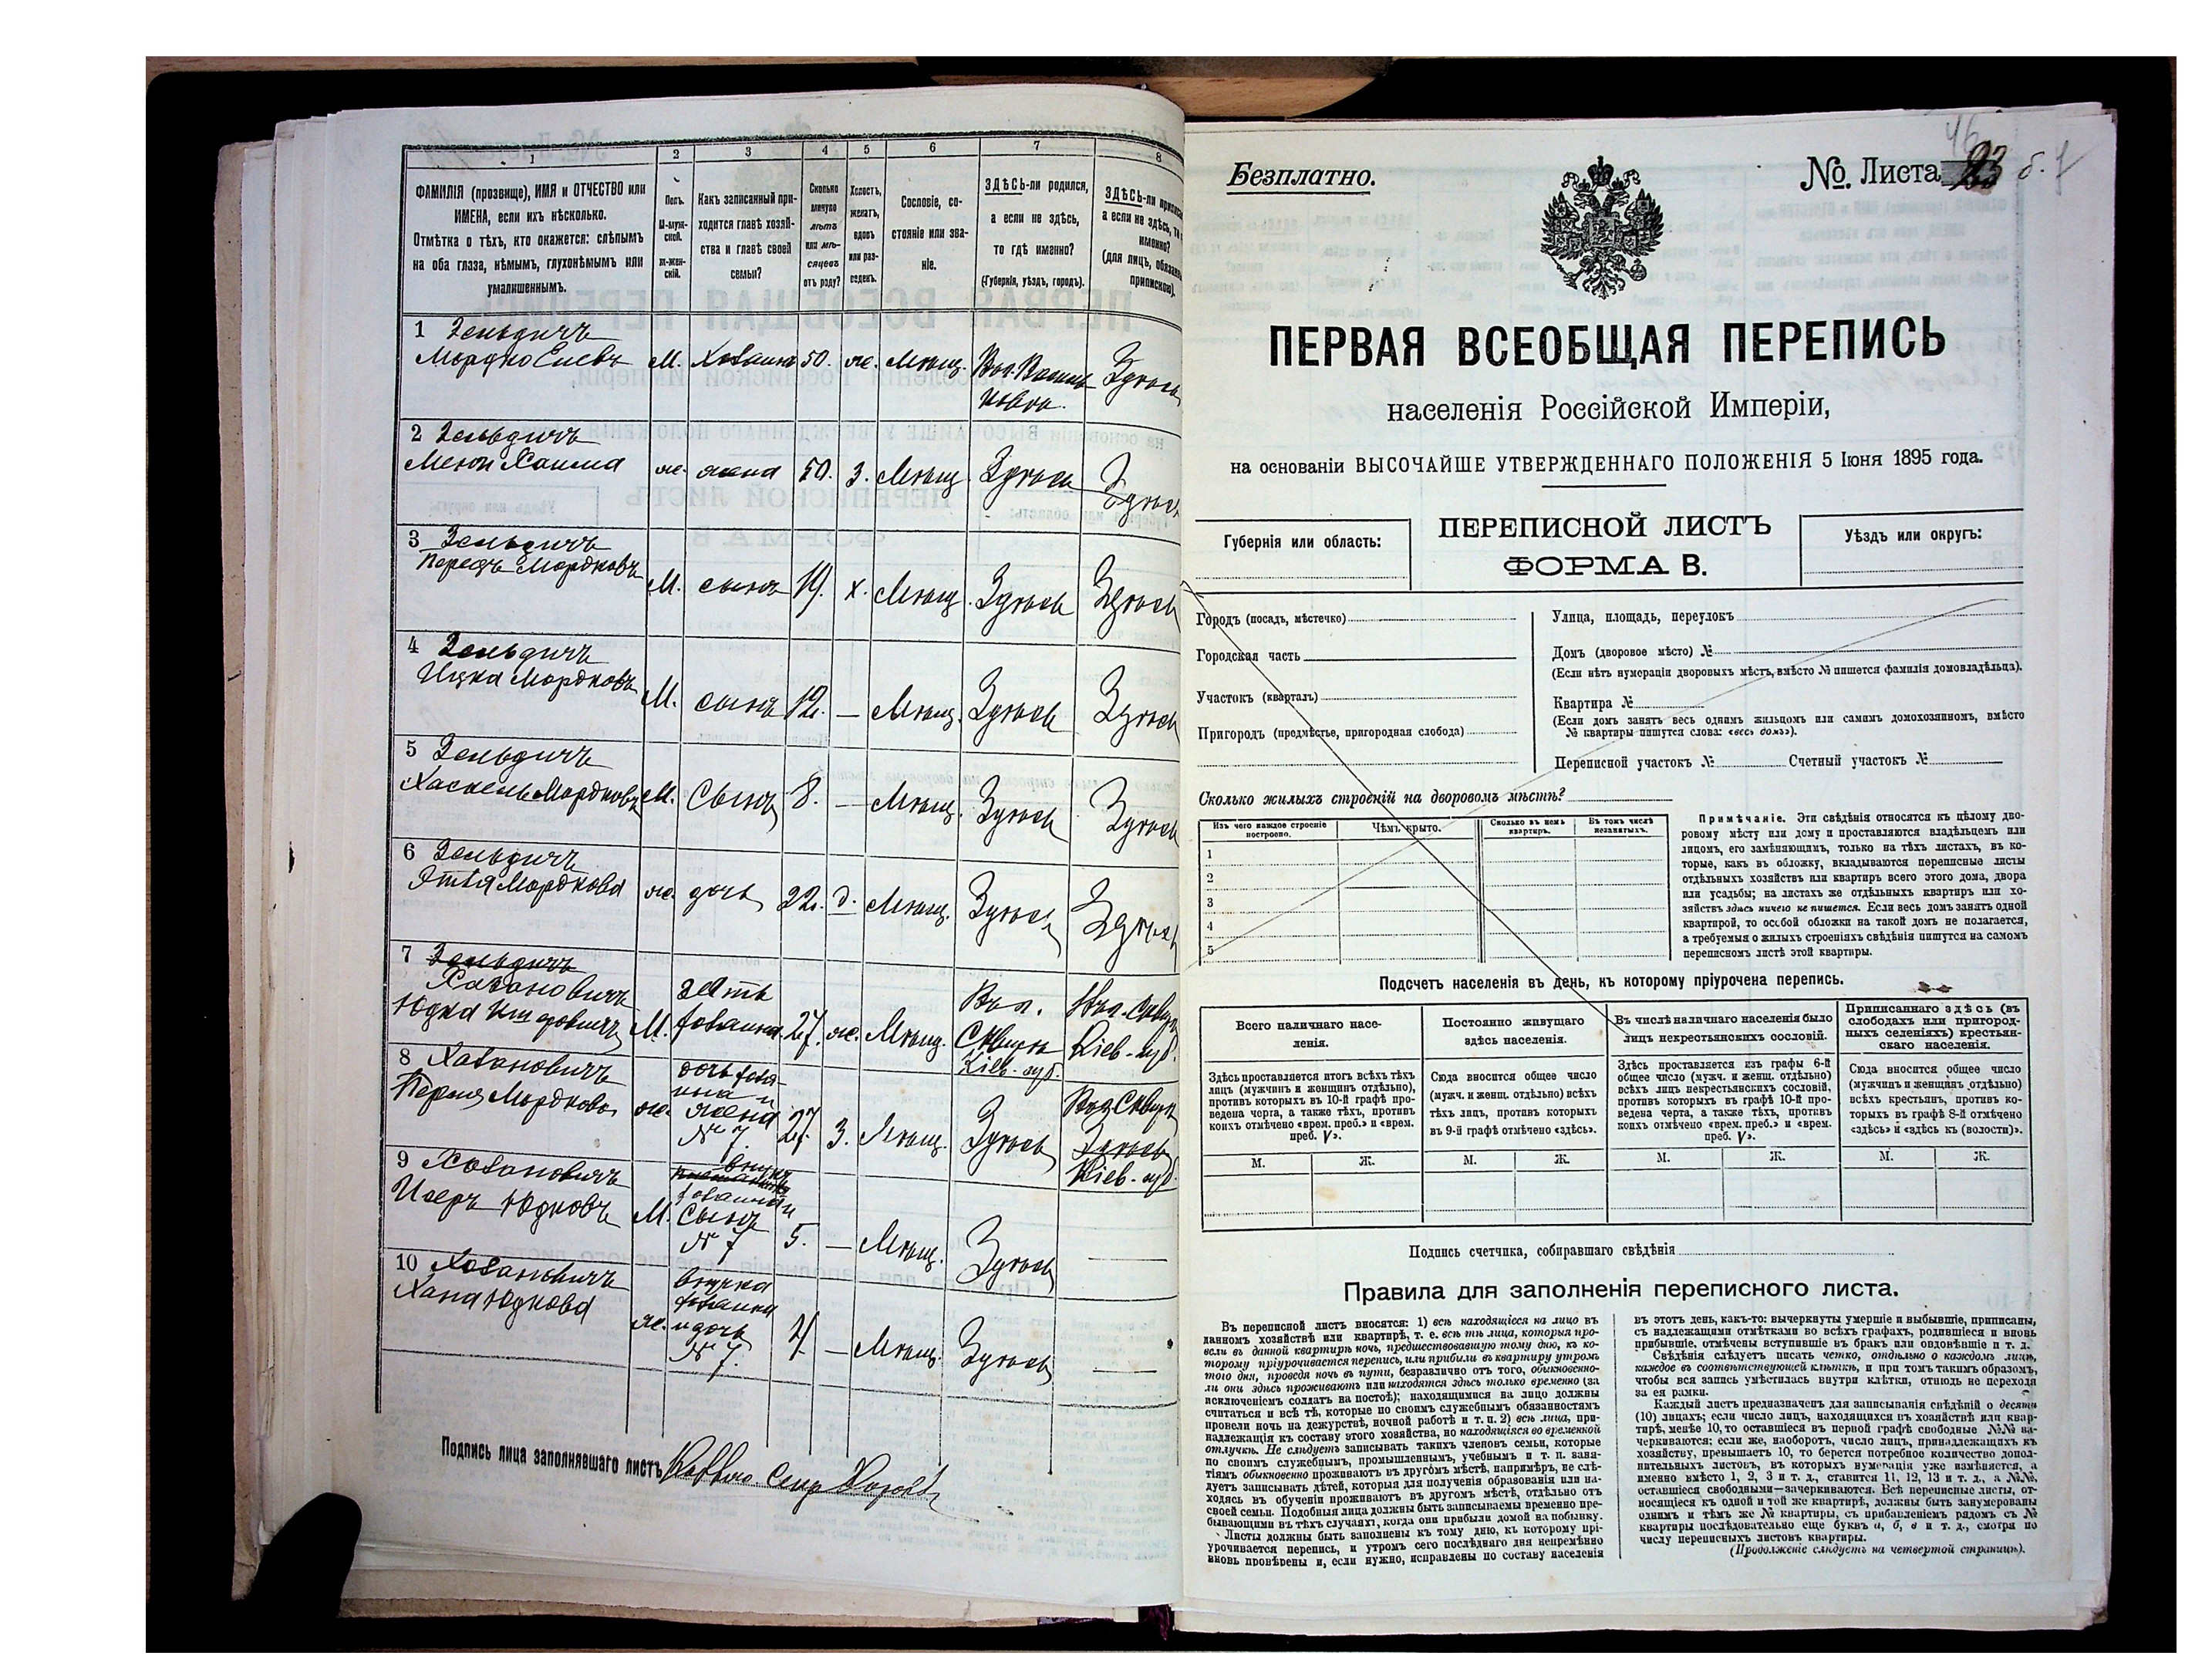 1 2 3 4 5 6 7 8
ФАМИЛІЯ (прозвище), ИМЯ и ОТЧЕСТВО или ИМЕНА, если ихъ нѣсколько.
Отмѣтка о тѣхъ, кто окажется: слѣпымъ на оба глаза, нѣмымъ, глухонѣмымъ или умалишеннымъ.
Полъ. М-мужской. ж-женскій.
Какъ записанный приходится главѣ хозяйства и главѣ своей семьи?
Сколько минуло лѣтъ или мѣсяцевъ отъ роду?
Холостъ, женатъ, вдовъ или разведенъ.
Сословіе, состояніе или званіе.
ЗДѢСЬ-ли родился, а если не здѣсь, то гдѣ именно?
(Губернія, уѣздъ, городъ).
ЗДѢСЬ-ли
а если не здѣсь,
именно?
(для лицъ,
припискою).
1 Зельдичъ
Мордко Елевъ М. Хозяинъ 50. ж. Мѣщ. Здѣсь
2 Зельдичъ
Хаима ж. жена 50. З. Мѣщ. Здѣсь Здѣсь
3 Зельдичъ
Перецъ Мордковъ М. сынъ 19. х. Мѣщ. Здѣсь Здѣсь
4 Зельдичъ
Ицка Мордковъ М. сынъ 12. — Мѣщ. Здѣсь Здѣсь
5 Зельдичъ
Хаскель Мордковъ М. Сынъ 8. — Мѣщ. Здѣсь Здѣсь
6 Зельдичъ
Мордкова ж. дочь 22. д. Мѣщ. Здѣсь Здѣсь
7 Зельдичъ
Хазановичъ зять
Юдка М. хозяина 27. ж. Мѣщ. Сквира Кіев. губ. Кіев. губ.
8 Хазановичъ дочь хозяина и
Перля Мордкова ж. жена № 7. 27. З. Мѣщ. Здѣсь Здѣсь Кіев. губ.
9 Хазановичъ внукъ
хозяина и
Исеръ Юдковъ М. Сынъ № 7 5. — Мѣщ. Здѣсь —
10 Хазановичъ внучка
хозяина
Хана Юдкова ж. и дочь № 7. 4 — Мѣщ. Здѣсь —
Подпись лица заполнявшаго листъ
Безплатно.
№. Листа 23
46
ПЕРВАЯ ВСЕОБЩАЯ ПЕРЕПИСЬ
населенія Россійской Имперіи,
на основаніи ВЫСОЧАЙШЕ УТВЕРЖДЕННАГО ПОЛОЖЕНІЯ 5 Іюня 1895 года.
Губернія или область:
ПЕРЕПИСНОЙ ЛИСТЪ
ФОРМА В.
Уѣздъ или округъ:
Городъ (посадъ, мѣстечко)
Городская часть
Участокъ (кварталъ)
Пригородъ (предмѣстье, пригородная слобода)
Улица, площадь, переулокъ
Домъ (дворовое мѣсто) №
(Если нѣтъ нумераціи дворовыхъ мѣстъ, вмѣсто № пишется фамилія домовладѣльца).
Квартира №
(Если домъ занятъ весь однимъ жильцомъ или самимъ домохозяиномъ, вмѣсто
№ квартиры пишутся слова: «весь домъ»).
Переписной участокъ № Счетный участокъ №
Сколько жилыхъ строеній на дворовомъ мѣстѣ?
Изъ чего каждое строеніе построено.
Чѣмъ крыто.
Сколько въ немъ квартиръ.
Въ томъ числѣ незанятыхъ.
1
2
3
4
5
Примѣчаніе. Эти свѣдѣнія относятся къ цѣлому дво-
ровому мѣсту или дому и проставляются владѣльцемъ или
лицомъ, его замѣняющимъ, только на тѣхъ листахъ, въ ко-
торые, какъ въ обложку, вкладываются переписные листы
отдѣльныхъ хозяйствъ или квартиръ всего этого дома, двора
или усадьбы; на листахъ же отдѣльныхъ квартиръ или хо-
зяйствъ здѣсь ничего не пишется. Если весь домъ занятъ одной
квартирой, то особой обложки на такой домъ не полагается,
а требуемыя о жилыхъ строеніяхъ свѣдѣнія пишутся на самомъ
переписномъ листѣ этой квартиры.
Подсчетъ населенія въ день, къ которому пріурочена перепись.
Всего наличнаго насе-
ленія.
Постоянно живущаго
здѣсь населенія.
Въ числѣ наличнаго населенія было
лицъ некрестьянскихъ сословій.
Приписаннаго здѣсь (въ
слободахъ или пригород-
ныхъ селеніяхъ) крестьян-
скаго населенія.
Здѣсь проставляется итогъ всѣхъ тѣхъ
лицъ (мужчинъ и женщинъ отдѣльно),
противъ которыхъ въ 10-й графѣ про-
ведена черта, а также тѣхъ, противъ
коихъ отмѣчено «врем. преб.» и «врем.
преб. V».
Сюда вносится общее число
(мужч. и женщ. отдѣльно) всѣхъ
тѣхъ лицъ, противъ которыхъ
въ 9-й графѣ отмѣчено «здѣсь».
Здѣсь проставляется изъ графы 6-й
общее число (мужч. и женщ. отдѣльно)
всѣхъ лицъ некрестьянскихъ сословій,
противъ которыхъ въ графѣ 10-й про-
ведена черта, а также тѣхъ, противъ
коихъ отмѣчено «врем. преб.» и «врем.
преб. V».
Сюда вносится общее число
(мужчинъ и женщинъ отдѣльно)
всѣхъ крестьянъ, противъ ко-
торыхъ въ графѣ 8-й отмѣчено
«здѣсь» и «здѣсь къ (волости)».
М. Ж. М. Ж. М. Ж. М. Ж.
Подпись счетчика, собиравшаго свѣдѣнія
Правила для заполненія переписного листа.
Въ переписной листъ вносятся: 1) всѣ находящіеся на лицо въ
данномъ хозяйствѣ или квартирѣ, т. е. всѣ тѣ лица, которыя про-
вели въ данной квартирѣ ночь, предшествовавшую тому дню, къ ко-
торому пріурочивается перепись, или прибыли въ квартиру утромъ
того дня, проведя ночь въ пути, безразлично отъ того, обыкновенно-
ли они здѣсь проживаютъ или находятся здѣсь только временно (за
исключеніемъ солдатъ на постоѣ); находящимися на лицо должны
считаться и всѣ тѣ, которые по своимъ служебнымъ обязанностямъ
провели ночь на дежурствѣ, ночной работѣ и т. п. 2) всѣ лица, при-
надлежащія къ составу этого хозяйства, но находящіяся во временной
отлучкѣ. Не слѣдуетъ записывать такихъ членовъ семьи, которые
по своимъ служебнымъ, промышленнымъ, учебнымъ и т. п. заня-
тіямъ обыкновенно проживаютъ въ другомъ мѣстѣ, напримѣръ, не слѣ-
дуетъ записывать дѣтей, которыя для полученія образованія или на-
ходясь въ обученіи проживаютъ въ другомъ мѣстѣ, отдѣльно отъ
своей семьи. Подобныя лица должны быть записываемы временно пре-
бывающими въ тѣхъ случаяхъ, когда они прибыли домой на побывку.
Листы должны быть заполнены къ тому дню, къ которому прі-
урочивается перепись, и утромъ сего послѣдняго дня непремѣнно
вновь провѣрены и, если нужно, исправлены по составу населенія
въ этотъ день, какъ-то: вычеркнуты умершіе и выбывшіе, приписаны,
съ надлежащими отмѣтками во всѣхъ графахъ, родившіеся и вновь
прибывшіе, отмѣчены вступившіе въ бракъ или овдовѣвшіе и т. д.
Свѣдѣнія слѣдуетъ писать четко, отдѣльно о каждомъ лицѣ,
каждое въ соотвѣтствующей клѣткѣ, и при томъ такимъ образомъ,
чтобы вся запись умѣстилась внутри клѣтки, отнюдь не переходя
за ея рамки.
Каждый листъ предназначенъ для записыванія свѣдѣній о десяти
(10) лицахъ; если число лицъ, находящихся въ хозяйствѣ или квар-
тирѣ, менѣе 10, то оставшіеся въ первой графѣ свободные №№ за-
черкиваются; если же, наоборотъ, число лицъ, принадлежащихъ къ
хозяйству, превышаетъ 10, то берется потребное количество допол-
нительныхъ листовъ, въ которыхъ нумерація уже измѣняется, а
именно вмѣсто 1, 2, 3 и т. д., ставится 11, 12, 13 и т. д., а №№,
оставшіеся свободными—зачеркиваются. Всѣ переписные листы, от-
носящіеся къ одной и той же квартирѣ, должны быть занумерованы
однимъ и тѣмъ же № квартиры, съ прибавленіемъ рядомъ съ №
квартиры послѣдовательно еще буквъ а, б, в и т. д., смотря по
числу переписныхъ листовъ квартиры.
(Продолженіе слѣдуетъ на четвертой страницѣ).